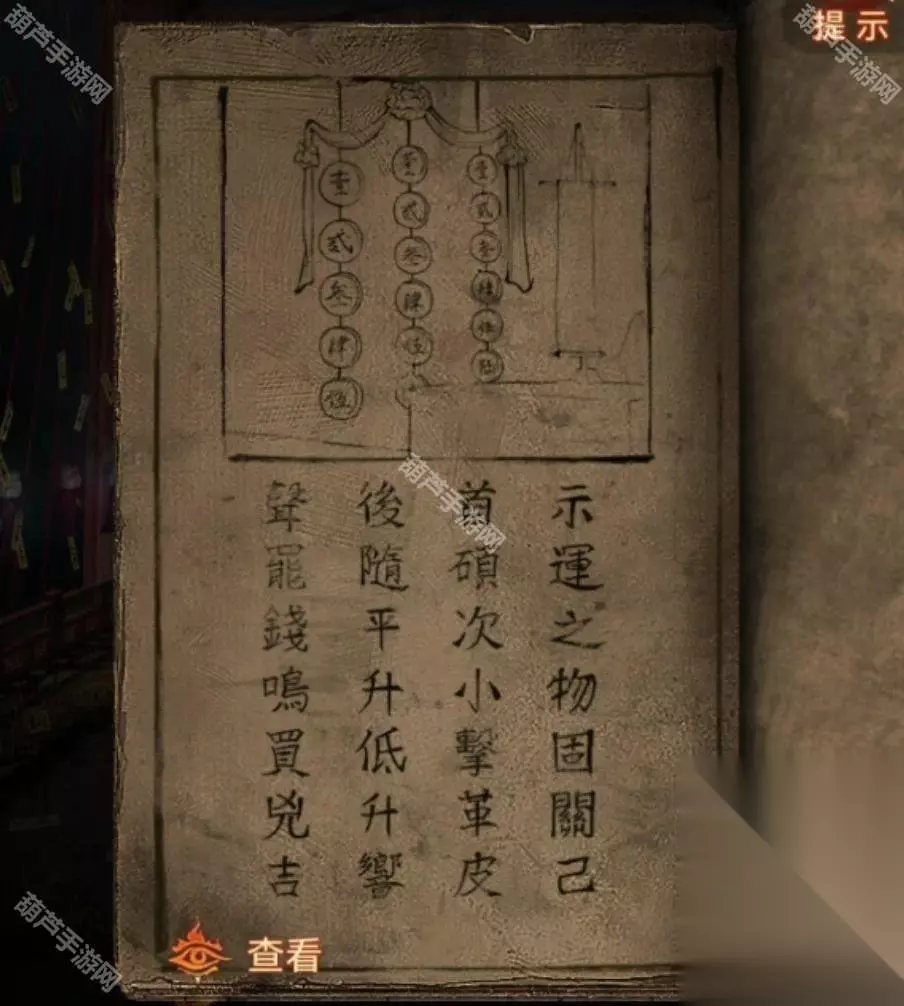 提示
壹
貳
叁
肆
伍
壹
貳
叁
肆
伍
壹
貳
叁
肆
伍
陸
示運之物固關己
首碩次小擊革皮
後隨平升低升響
聲罷錢鳴買兇吉
查看
葫芦手游网
葫芦手游网
葫芦手游网
葫芦手游网
葫芦手游网